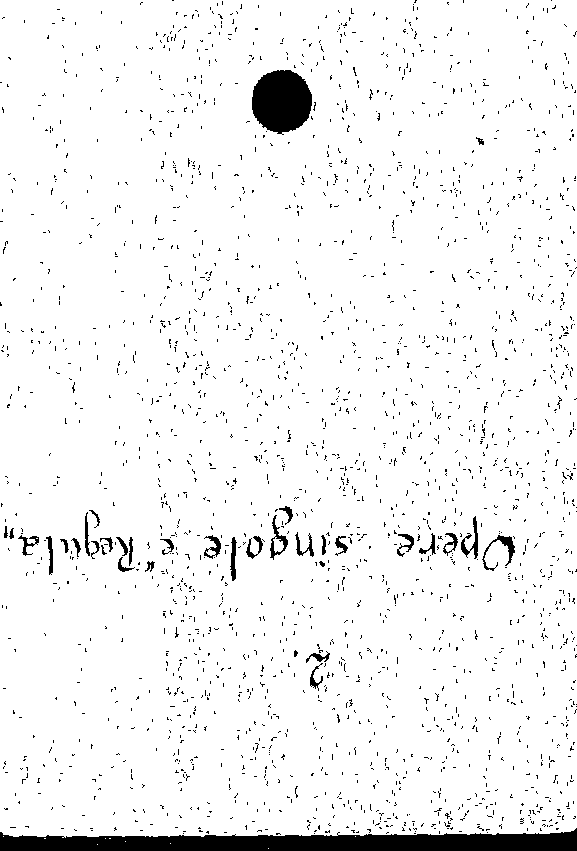 2.
Opere singole e "Regula"